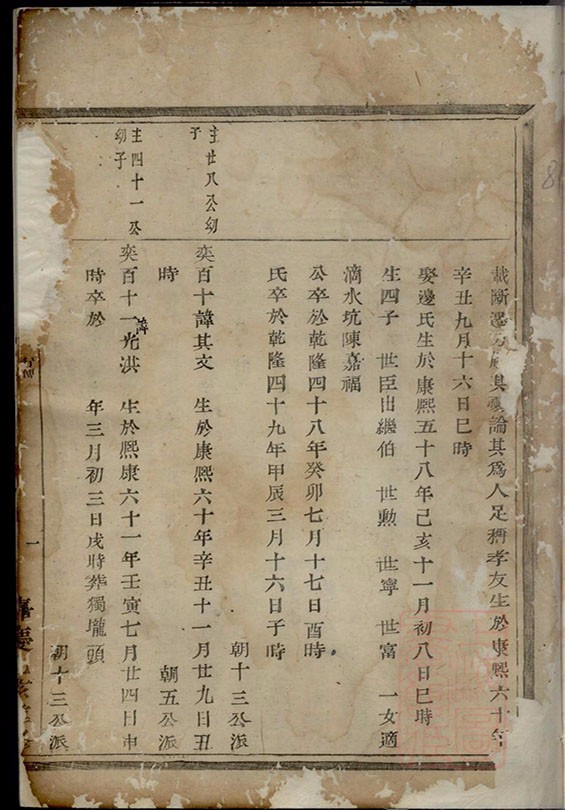 裁斷 論其爲人足稱孝友生於康熙六十年
辛丑九月十六日巳時
娶邊氏生於康熙五十八年己亥十一月初八日巳時
生四子 世臣出繼伯 世勲 世寧 世富 一女適
滴水坑陳嘉福
公卒於乾隆四十八年癸卯七月十七日酉時
氏卒於乾隆四十九年甲辰三月十六日子時
朝十三公派
主廿八公幼
子
奕百十諱其文 生於康熙六十年辛丑十一月廿九日丑
時 朝五公派
主四十一公
幼子
奕百十一諱光洪 生於熙康六十一年壬寅七月廿四日申
時卒於 年三月初三日戌時葬獨壠頭
朝十三公派
一